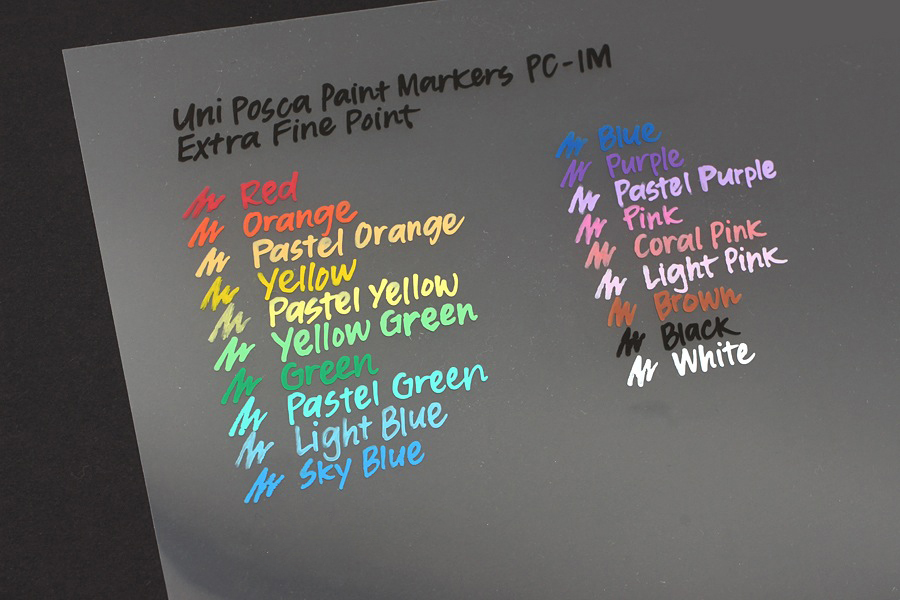 Uni Posca Paint Markers PC-1M
Extra Fine Point
Red
Orange
Pastel Orange
Yellow
Pastel Yellow
Yellow Green
Green
Pastel Green
Light Blue
Sky Blue
Blue
Purple
Pastel Purple
Pink
Coral Pink
Light Pink
Brown
Black
White